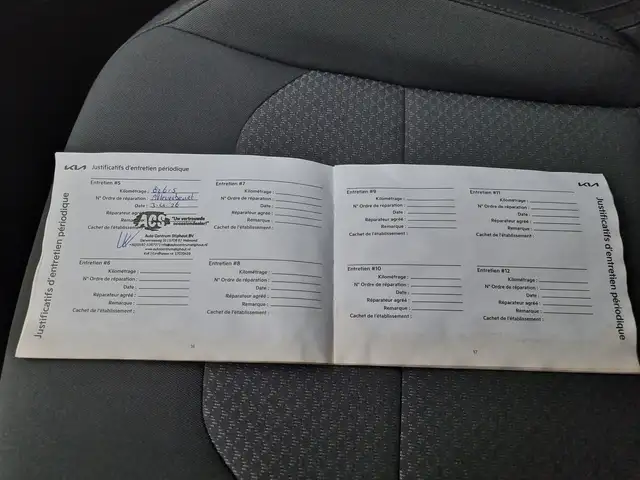 KIA Justificatifs d'entretien périodique
Justificatifs d'entretien périodique
Entretien #5
Kilométrage :
N° Ordre de réparation :
Date :
Réparateur agréé :
Rema
Cachet de l'établissem
ACS "Uw vertrouwde
Auto Centrum Stiphout BV
Entretien #7
Kilométrage :
N° Ordre de réparation :
Date :
Réparateur agréé :
Remarque :
Cachet de l'établissement :
Entretien #6
Kilométrage :
N° Ordre de réparation :
Date :
Réparateur agréé :
Remarque :
Cachet de l'établissement :
Entretien #8
Kilométrage :
N° Ordre de réparation :
Date :
Réparateur agréé :
Remarque :
Cachet de l'établissement :
Kilométrage :
N° Ordre de réparation :
Date :
Réparateur agréé :
Remarque :
Cachet de l'établissement :
Entretien #11
KIA
Kilométrage :
N° Ordre de réparation :
Date :
Réparateur agréé :
Remarque :
Cachet de l'établissement :
Entretien #10
Kilométrage :
N° Ordre de réparation :
Date :
Réparateur agréé :
Remarque :
Cachet de l'établissement :
Entretien #12
Kilométrage :
N° Ordre de réparation :
Date :
Réparateur agréé :
Remarque :
Cachet de l'établissement :
Justificatifs d'entretien périodique